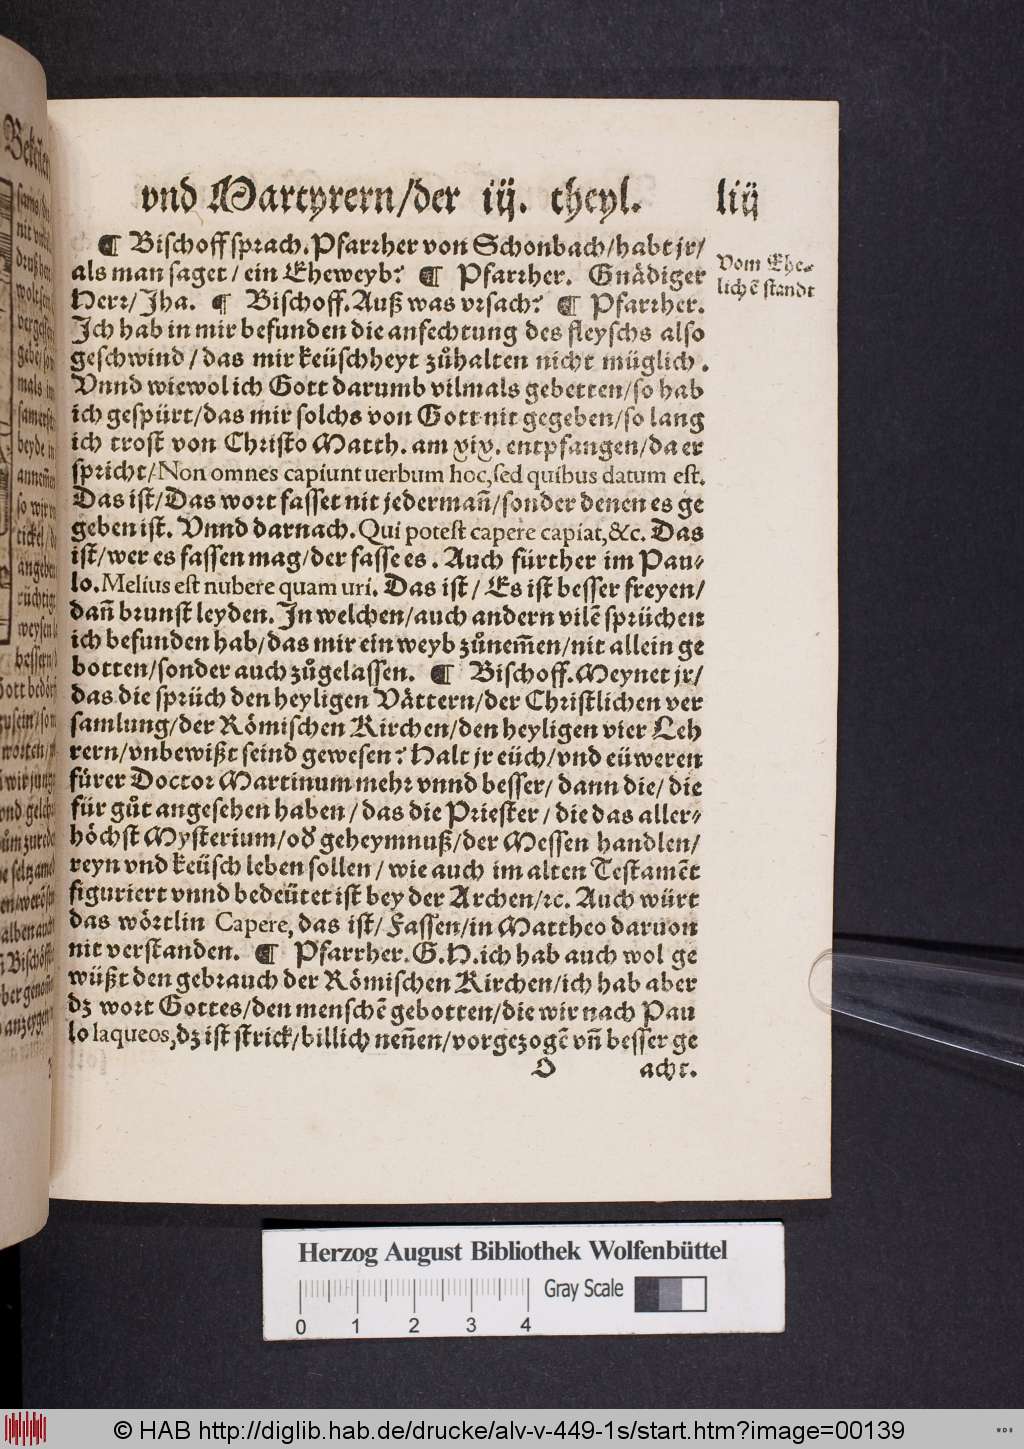 vnd Martyrern/der iij. theyl. liij
¶ Bischoff sprach. Pfarrher von Schonbach/habt jr/
als man saget/ein Eheweyb? ¶ Pfarrher. Gnädiger
Herr/Jha. ¶ Bischoff. Auß was vrsach? ¶ Pfarrher.
Vom Ehe-
lichē standt
Ich hab in mir befunden die anfechtung des fleyschs also
geschwind/das mir keüschheyt zůhalten nicht müglich.
Vnnd wiewol ich Gott darumb vilmals gebetten/so hab
ich gespürt/das mir solchs von Gott nit gegeben/so lang
ich trost von Christo Matth. am xix. entpfangen/da er
spricht/Non omnes capiunt uerbum hoc, sed quibus datum est.
Das ist/Das wort fasset nit jedermañ/sonder denen es ge
geben ist. Vnnd darnach. Qui potest capere capiat, &c. Das
ist/wer es fassen mag/der fasse es. Auch fürther im Pau-
lo. Melius est nubere quam uri. Das ist/Es ist besser freyen/
dañ brunst leyden. In welchen/auch andern vilē sprüchen
ich befunden hab/das mir ein weyb zůnem̄en/nit allein ge
botten/sonder auch zůgelassen. ¶ Bischoff. Meynet jr/
das die sprüch den heyligen Vättern/der Christlichen ver
samlung/der Römischen Kirchen/den heyligen vier Leh
rern/vnbewißt seind gewesen? Halt jr eüch/vnd eüweren
fürer Doctor Martinum mehr vnnd besser/dann die/die
für gůt angesehen haben/das die Priester/die das aller-
höchst Mysterium/od̄ geheymnuß/der Messen handlen/
reyn vnd keüsch leben sollen/wie auch im alten Testamēt
figuriert vnnd bedeütet ist bey der Archen/ꝛc. Auch würt
das wörtlin Capere, das ist/Fassen/in Mattheo daruon
nit verstanden. ¶ Pfarrher. G. H. ich hab auch wol ge
wüßt den gebrauch der Römischen Kirchen/ich hab aber
dz wort Gottes/den menschē gebotten/die wir nach Pau
lo laqueos, dz ist strick/billich neñen/vorgezogē vñ besser ge
O acht.
Herzog August Bibliothek Wolfenbüttel
0 1 2 3 4 Gray Scale
© HAB http://diglib.hab.de/drucke/alv-v-449-1s/start.htm?image=00139